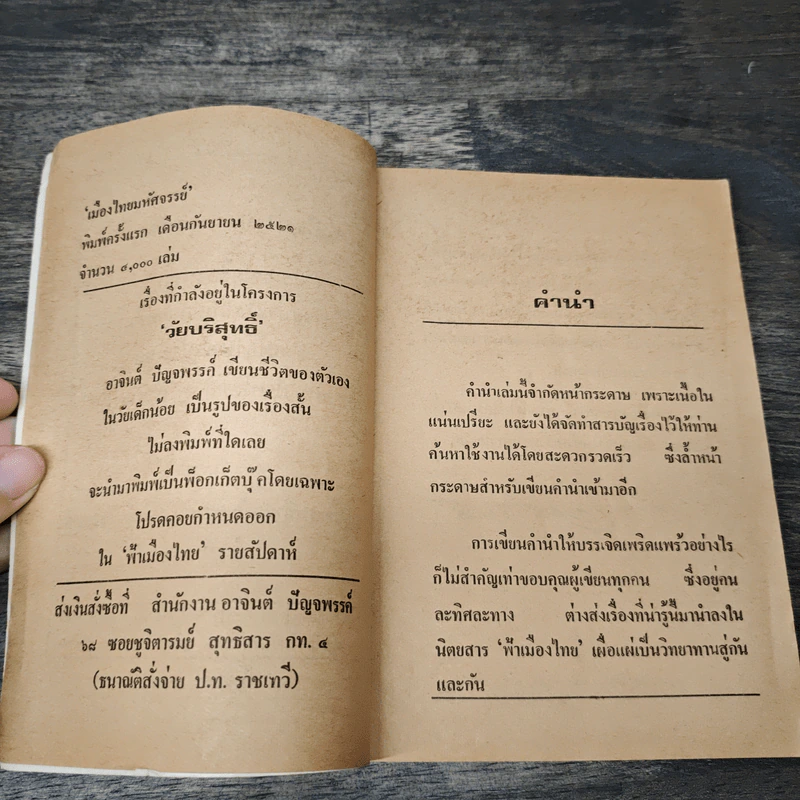 'เมืองไทยมหัศจรรย์'
พิมพ์ครั้งแรก เดือนกันยายน ๒๕๒๑
จำนวน ๙,๐๐๐ เล่ม
เรื่องที่กำลังอยู่ในโครงการ
'วัยบริสุทธิ์'
อาจินต์ ปัญจพรรค์ เขียนชีวิตของตัวเอง
ในวัยเด็กน้อย เป็นรูปของเรื่องสั้น
ไม่ลงพิมพ์ที่ใดเลย
จะนำมาพิมพ์เป็นพ็อกเก็ตบุ๊คโดยเฉพาะ
โปรดคอยกำหนดออก
ใน 'ฟ้าเมืองไทย' รายสัปดาห์
ส่งเงินสั่งซื้อที่ สำนักงาน อาจินต์ ปัญจพรรค์
๖๘ ซอยชูจิตารมย์ สุทธิสาร กท. ๔
(ธนาณัติสั่งจ่าย ป.ท. ราชเทวี)
คำนำ
คำนำเล่มนี้จำกัดหน้ากระดาษ เพราะเนื้อใน
แน่นเปรี๊ยะ และยังได้จัดทำสารบัญเรื่องไว้ให้ท่าน
ค้นหาใช้งานได้โดยสะดวกรวดเร็ว ซึ่งล้ำหน้า
กระดาษสำหรับเขียนคำนำเข้ามาอีก
การเขียนคำนำให้บรรเจิดเพริดแพร้วอย่างไร
ก็ไม่สำคัญเท่าขอบคุณผู้เขียนทุกคน ซึ่งอยู่คน
ละทิศละทาง ต่างส่งเรื่องที่น่ารู้นี้มานำลงใน
นิตยสาร 'ฟ้าเมืองไทย' เผื่อแผ่เป็นวิทยาทานสู่กัน
และกัน